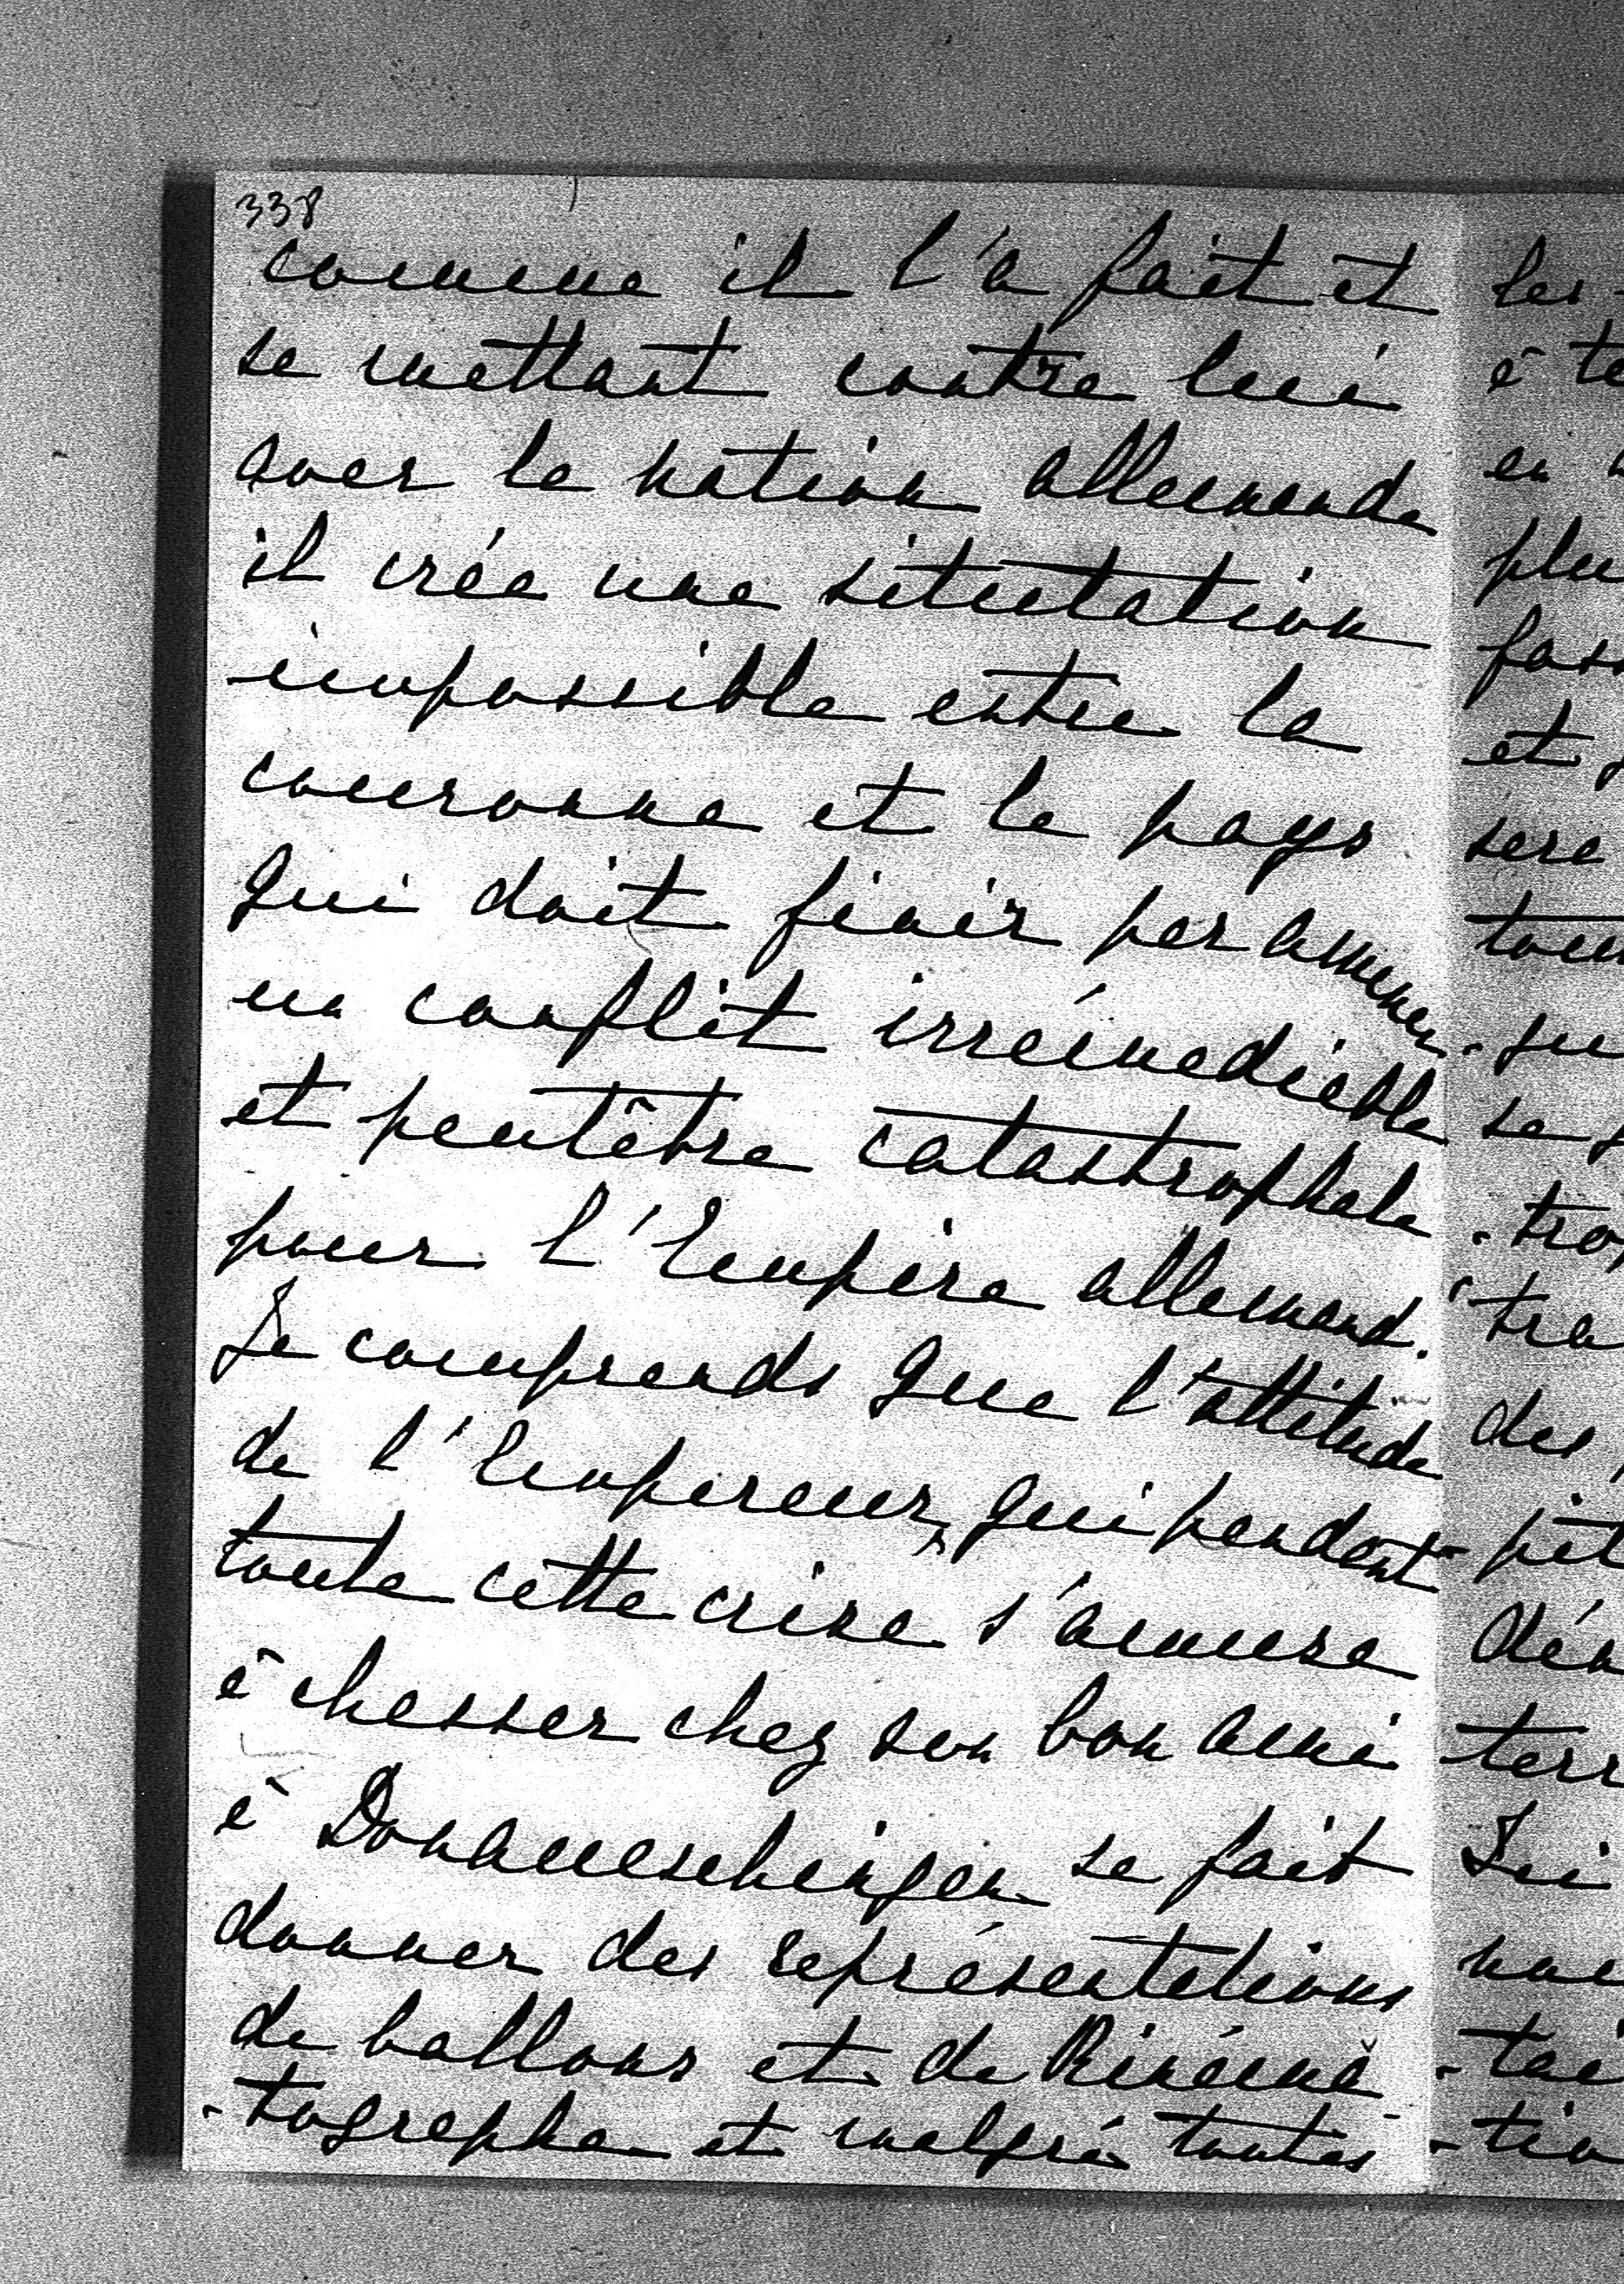 338
comme il l'a fait et
se mettant contre lui
avec la nation allemande
il crée une situtation
impossible entre la
couronne et le pays
qui doit finir par amener
un conflit irrémediable
et peutêtre catastrophale
pour l'Empire allemand.
Je comprends que l'attitude
de l'Empereur, qui pendant
toute cette crise s'amuse
à chasser chez son bon ami
à Donaueschingen se fait
donner des représentations
de ballons et de Kinéma
-tographe et malgré toutes
les
à
en
et
se
des